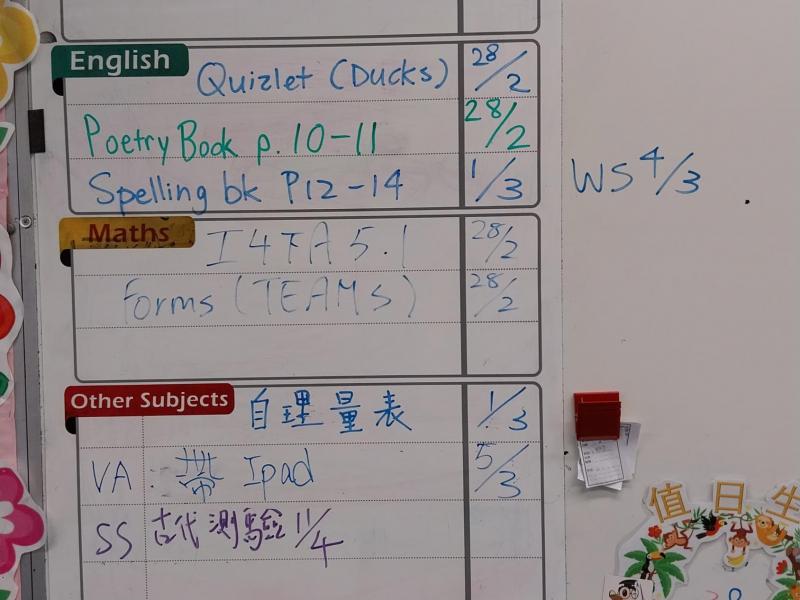 English
Quizlet (Ducks) 28/2
Poetry Book p. 10-11 28/2
Spelling bk P12-14 1/3 WS 4/3
Maths
I4TA 5.1 28/2
Forms (TEAMS) 28/2
Other Subjects
自理量表 1/3
VA : 帶 Ipad 5/3
SS 古代測驗 11/4
值日生